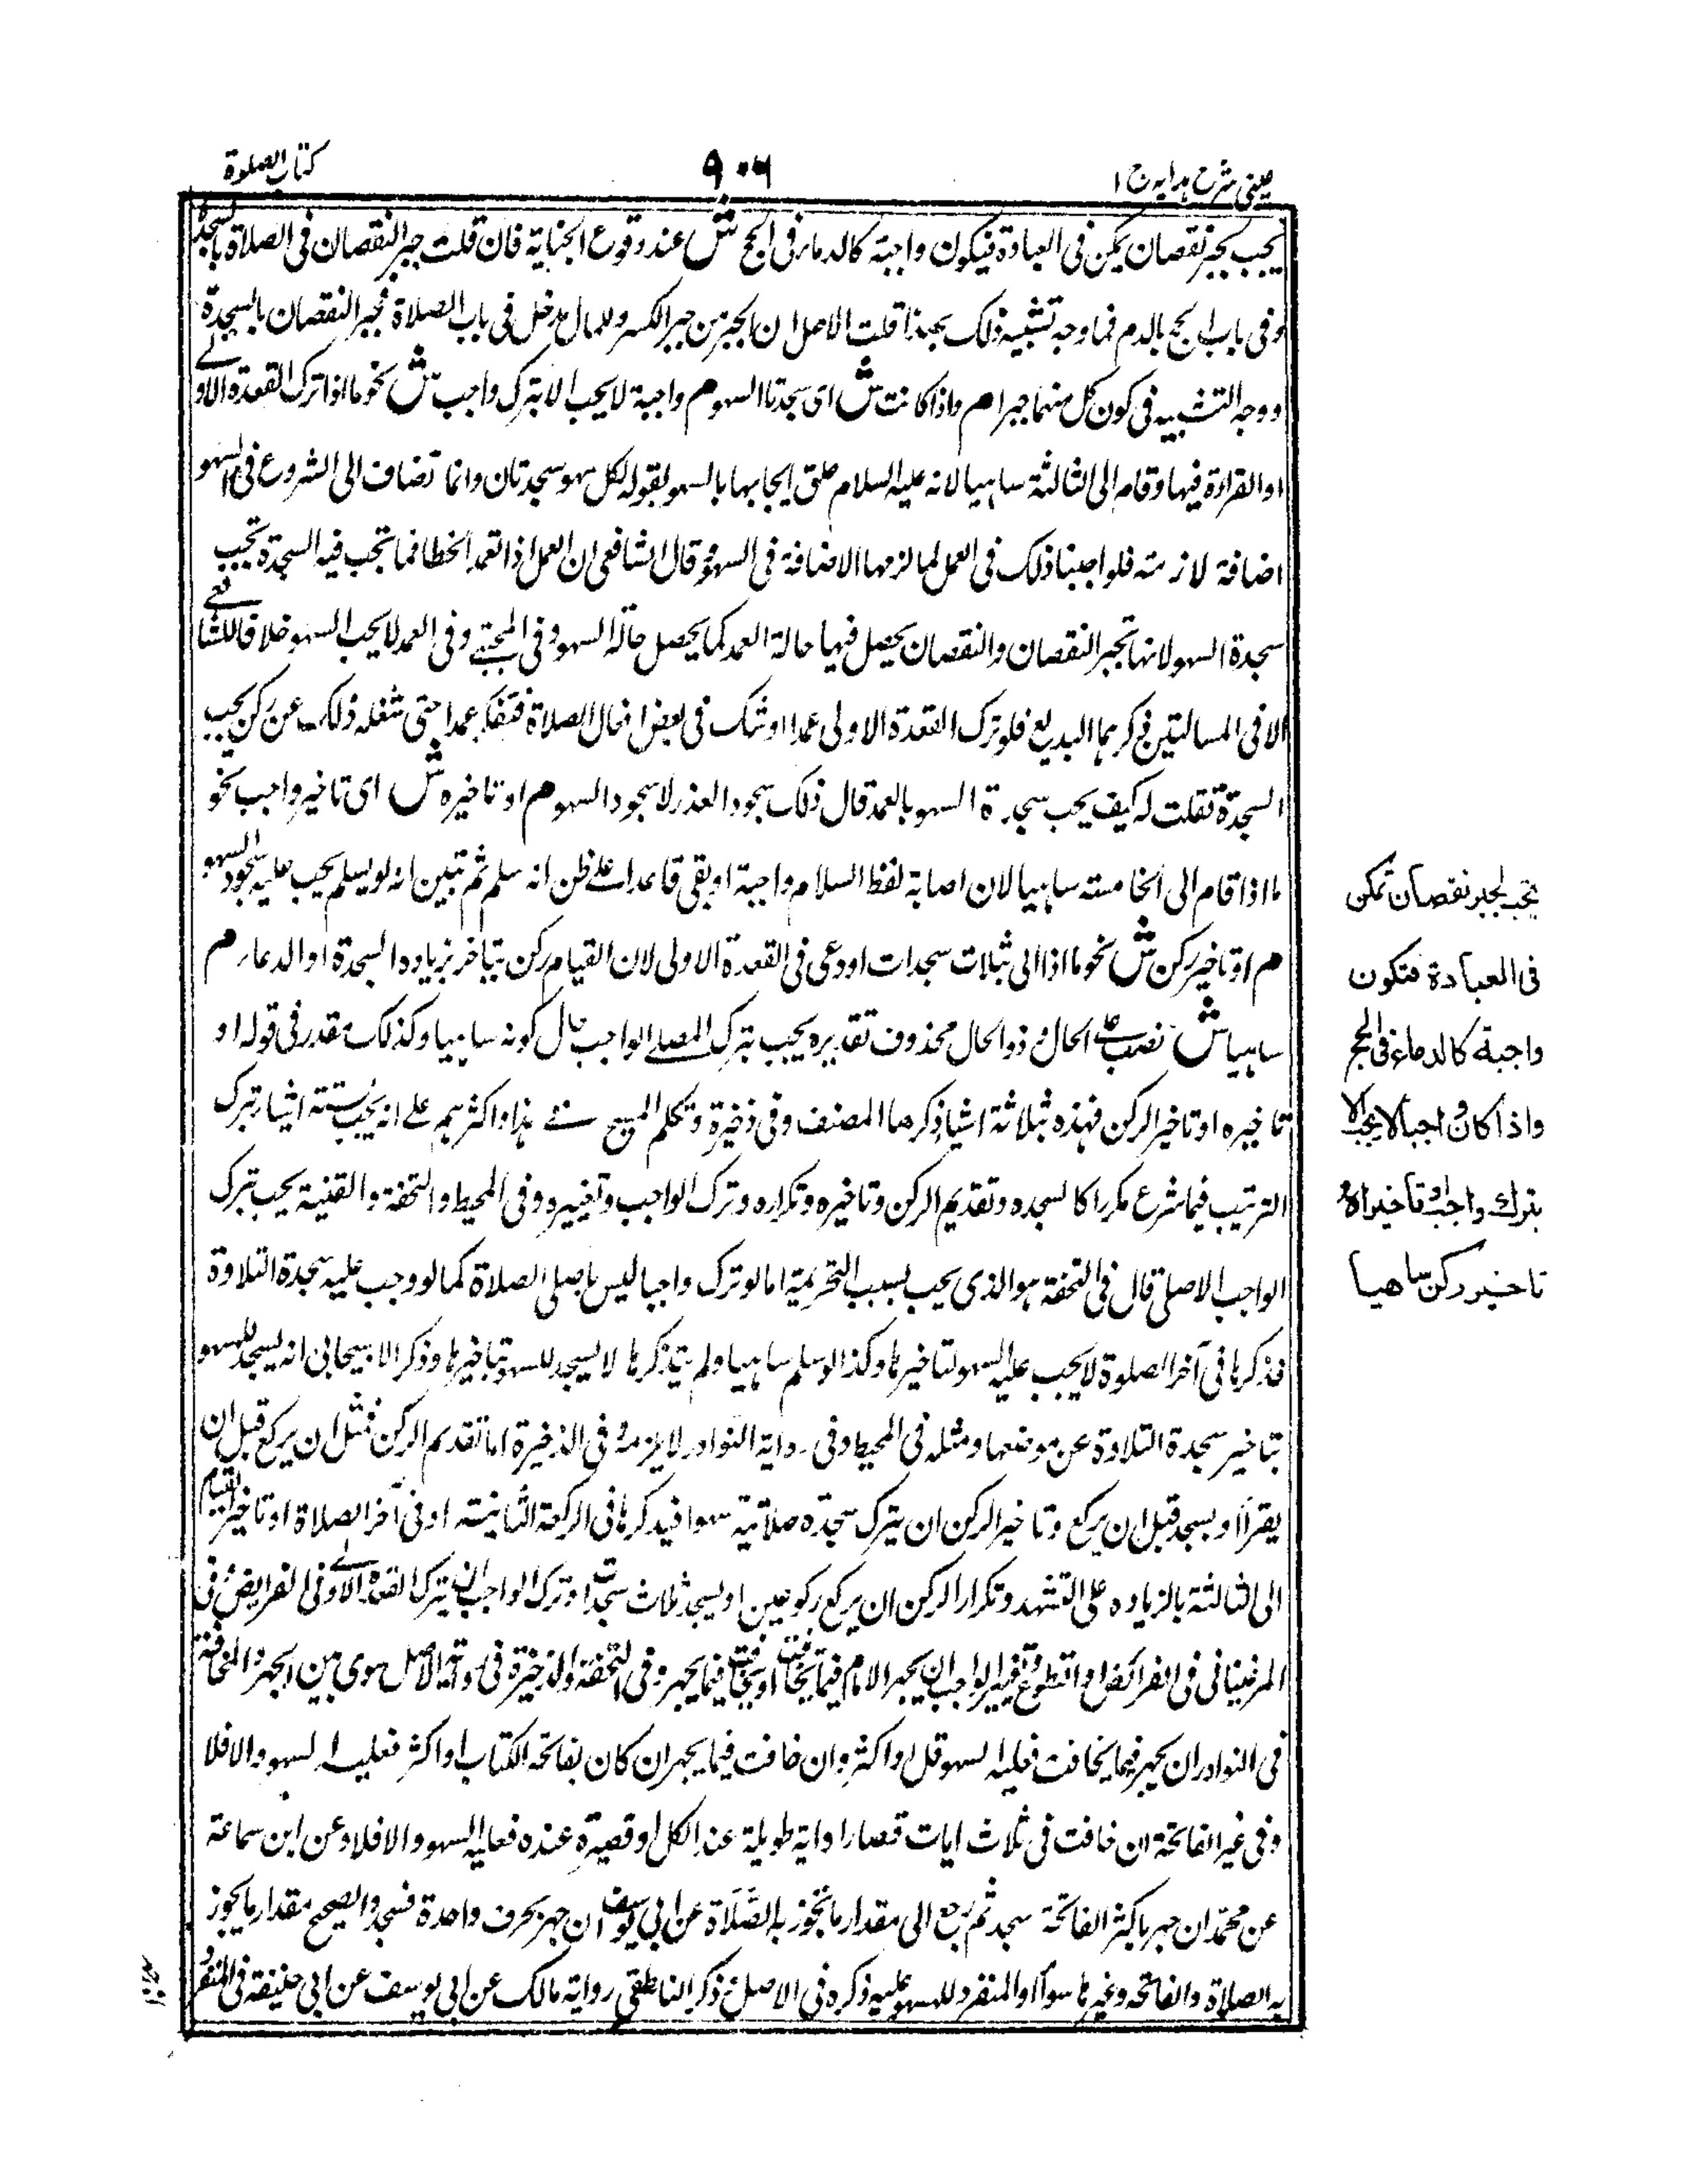 عینی شرح ہدایہ ج ۱
۹۰۶
کتاب الصلوة
یجب لجبر نقصان یمکن فی العبادة فیکون واجبة کالدماء فی الحج ش عند وقوع الجنایة فان قلت جبر النقصان فی الصلاة بالسجدة
وفی باب الحج بالدم فما وجه تشبیه ذلک بهذا قلت الاصل ان الجبر من جبر الکسر وللمال مدخل فی باب الصلاة فجبر النقصان بالسجدة
ووجه التشبیه فی کون کل منهما جبرا م واذا کانت ش ای سجدتا السهو م واجبة لا یجب الا بترک واجب ش نحو ما اذا ترک القعدة الاولے
او القراءة فیها وقام الی الثالثة ساهیا لانه علیه السلام علق ایجابها بالسهو بقوله لکل سهو سجدتان وانما تضاف الی الشروع فی السهو
اضافة لازمته فلو اجبنا ذلک فی العمل لما لزمها الاضافة فی السهو وقال الشافعی ان العمل اذا تعمد الخطا فما تجب فیه السجدة تجب
سجدة السهو لانها تجبر النقصان والنقصان یحصل فیها حالة العمد کما یحصل حالة السهو وفی المجتبے وفی العمد لا یجب السهو خلافا للشافعے
الا فی المسالتین ذکرهما البدیع فلو ترک القعدة الاولی عمدا او شک فی بعض افعال الصلاة فتفکر عمدا حتی شغله ذلک عن رکن یجب
السجدة فقلت له کیف یجب سجدة السهو بالعمد قال ذلک سجود العذر لا سجود السهو م او تاخیره ش ای تاخیر واجب نحو
ما اذا قام الی الخامسته ساهیا لان اصابة لفظ السلام واجبة او بقی قاعدا علے ظن انه سلم ثم تبین انه لو یسلم یجب علیه سجود السهو
م او تاخیر رکن ش نحو ما اذا الی بثلاث سجدات او دعی فی القعدة الاولی لان القیام رکن یتاخر بزیاده السجدة او الدعاء م
ساهیا ش نصب علے الحال و ذو الحال محذوف تقدیره یجب بترک المصلے الواجب حال کونه ساهیا وکذلک مقدر فی قوله او
تاخیره او تاخیر الرکن فهذه ثلاثة اشیا ذکرها المصنف وفی ذخیرة وتکلم المسبح فے هذا واکثرهم علے انه یجب بستة اشیاء بترک
الترتیب فیما شرع مکررا کالسجده وتقدیم الرکن وتاخیره وتکراره وترک الواجب وتغییره وفی المحیط والتحفة والقنیة یجب بترک
الواجب الاصلی قال فی التحفة هو الذی یجب بسبب التحریمة اما لو ترک واجبا لیس باصلی الصلاة کما لو وجب علیه سجدة التلاوة
فذکرها فی آخر الصلوة لا یجب علیه السهو لتاخیرها وکذا لو سلم ساهیا ولم یتذکرها لا یسجد للسهو بتاخیرها وذکر الاسبیجابی انه یسجد للسهو
بتاخیر سجدة التلاوة عن موضعها ومثله فی المحیط وفی روایة النوادر لا یلزمه وفی الذخیرة اما تقدیم الرکن فمثل ان یرکع قبل ان
یقرأ او یسجد قبل ان یرکع وتاخیر الرکن ان یترک سجده صلاتیة سهوا فیذکرها فی الرکعة الثانیته او فی آخر الصلاة او تاخیر القیام
الی الثالثة بالزیاده علی التشهد وتکرار الرکن ان یرکع رکوعین او یسجد ثلاث سجدات وترک الواجب ان یترک القعدة الاولے فی الفرایض وفی
المرغینانی فی الفرائض او التطوع وتغییر الواجب ان یجهر الامام فیما یخافت او یخافت فیما یجهر وفی التحفة والذخیرة فی روایة الاصل سوی بین الجهر والمخافتة
فی النوادر ان یجهر فیما یخافت فعلیه السهو قل او اکثر وان خافت فیما یجهر ان کان بفاتحة الکتاب او اکثر فعلیه السهو والا فلا
وفی غیر الفاتحة ان خافت فی ثلاث ایات قصار او ایة طویلة عند الکل او قصیرة عنده فعلیه السهو والا فلا وعن ابن سماعة
عن محمد ان جهر باکثر الفاتحة سجد ثم رجع الی مقدار ما تجوز به الصلاة عن ابی یوسف ان جهز بحرف واحدة فسجد والصحیح مقدار ما یجوز
به الصلاة والفاتحه وغیرها سوآ او المنفرد للسهو علیه ذکره فی الاصل وذکر الناطقی روایة مالک عن ابی یوسف عن ابی حنیفة فی المنفرد
یجب لجبر نقصان تمکن
فی العبادة فتکون
واجبة کالدماء فی الحج
واذا کان واجبا لا یجب الا
بترک واجب او تاخیره او
تاخیر رکن ساهیا